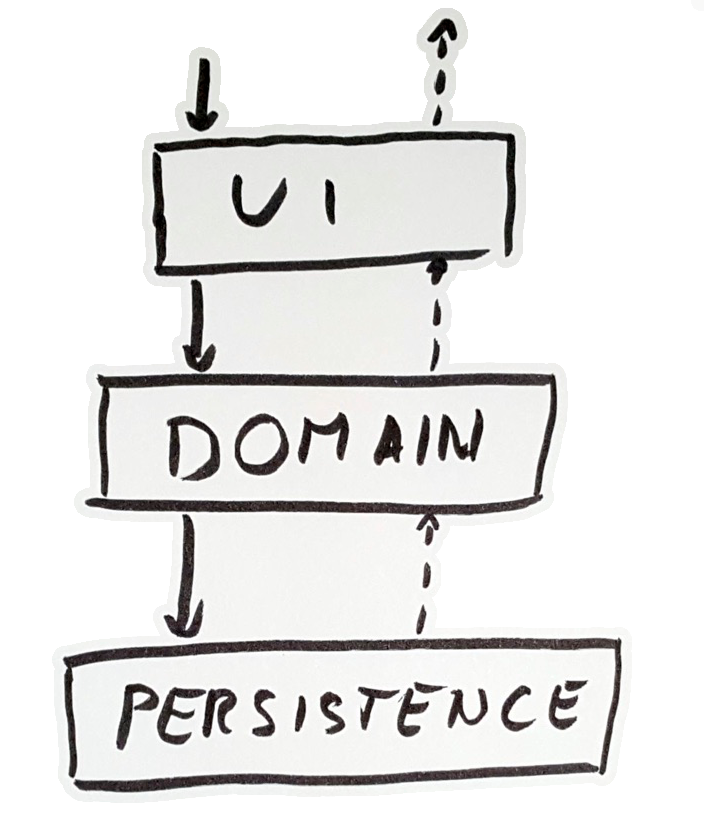 UI
DOMAIN
PERSISTENCE